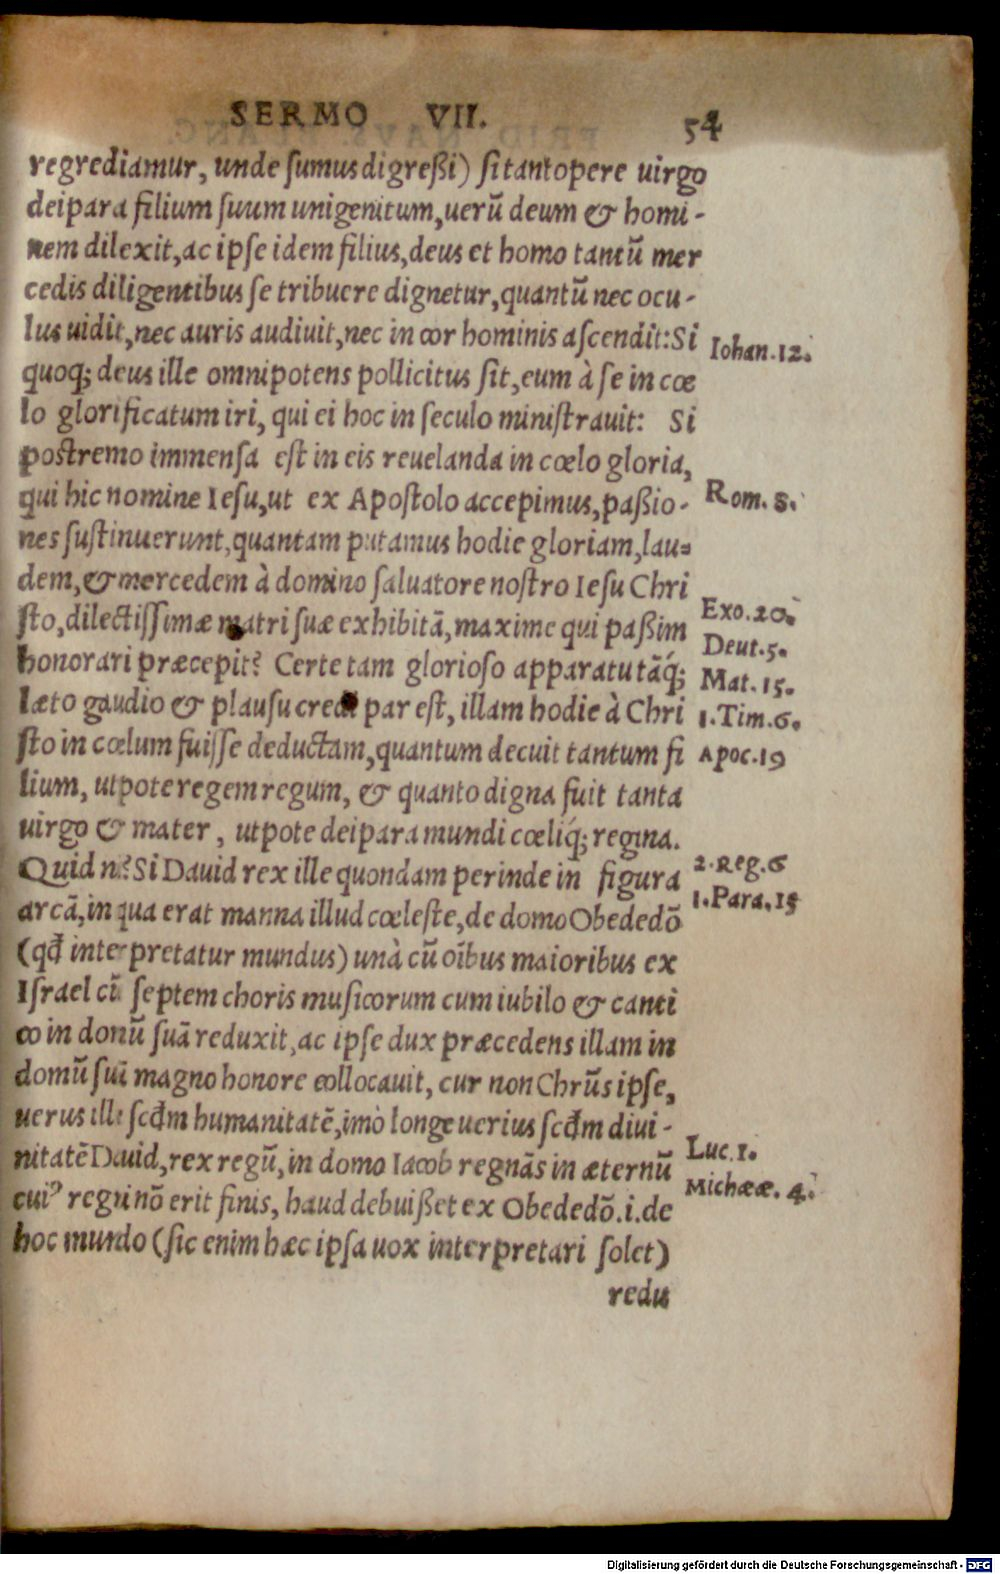 SERMO VII. 54
regrediamur, unde ſumus digreßi) ſi tantopere uirgo
deipara filium ſuum unigenitum, uerũ deum & homi-
nem dilexit, ac ipſe idem filius, deus et homo tantũ mer
cedis diligentibus ſe tribuere dignetur, quantũ nec ocu-
lus uidit, nec auris audiuit, nec in cor hominis aſcendit: Si
Iohan. 12.
quoq; deus ille omnipotens pollicitus ſit, eum à ſe in cœ
lo glorificatum iri, qui ei hoc in ſeculo miniſtrauit: Si
poſtremo immenſa eſt in eis reuelanda in cœlo gloria,
qui hic nomine Ieſu, ut ex Apoſtolo accepimus, paßio-
Rom. 8.
nes ſuſtinuerunt, quantam putamus hodie gloriam, lau-
dem, & mercedem à domino ſaluatore noſtro Ieſu Chri
ſto, dilectiſſimæ matri ſuæ exhibitã, maxime qui paßim
Exo. 20.
honorari præcepit? Certe tam glorioſo apparatu tãq́;
Deut. 5.
Mat. 15.
læto gaudio & plauſu credi par eſt, illam hodie à Chri
1. Tim. 6.
ſto in cœlum fuiſſe deductam, quantum decuit tantum fi
Apoc. 19
lium, utpote regem regum, & quanto digna fuit tanta
uirgo & mater, utpote deipara mundi cœliq́; regina.
Quid n? Si Dauid rex ille quondam perinde in figura
2. Reg. 6
arcã, in qua erat manna illud cœleſte, de domo Obededõ
1. Para. 15
(qđ interpretatur mundus) unà cũ oĩbus maioribus ex
Iſrael cũ ſeptem choris muſicorum cum iubilo & canti
co in domũ ſuã reduxit, ac ipſe dux præcedens illam in
domũ ſuã magno honore collocauit, cur non Chrũs ipſe,
uerus ille ſcđm humanitatẽ, imò longe uerius ſcđm diui-
nitatẽ Dauid, rex regũ, in domo Iacob regnãs in æternũ
Luc. 1.
cuiꝰ regni nõ erit finis, haud debuißet ex Obededõ .i. de
Michææ. 4.
hoc mundo (ſic enim hæc ipſa uox interpretari ſolet)
redu
Digitalisierung gefördert durch die Deutsche Forschungsgemeinschaft - DFG